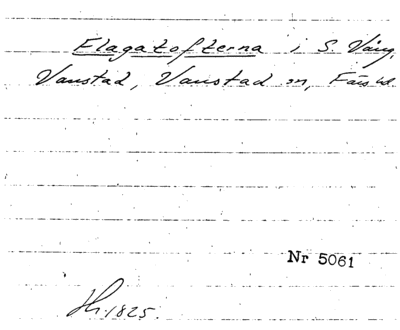 Flagatofterna i S. Vång,
Vanstad, Vanstad sn, Färs hd.
Nr 5061
Hr. 1825.